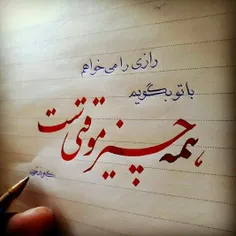 رازی را می خواهم
با تو بگویم
همه چیز موقتی ست